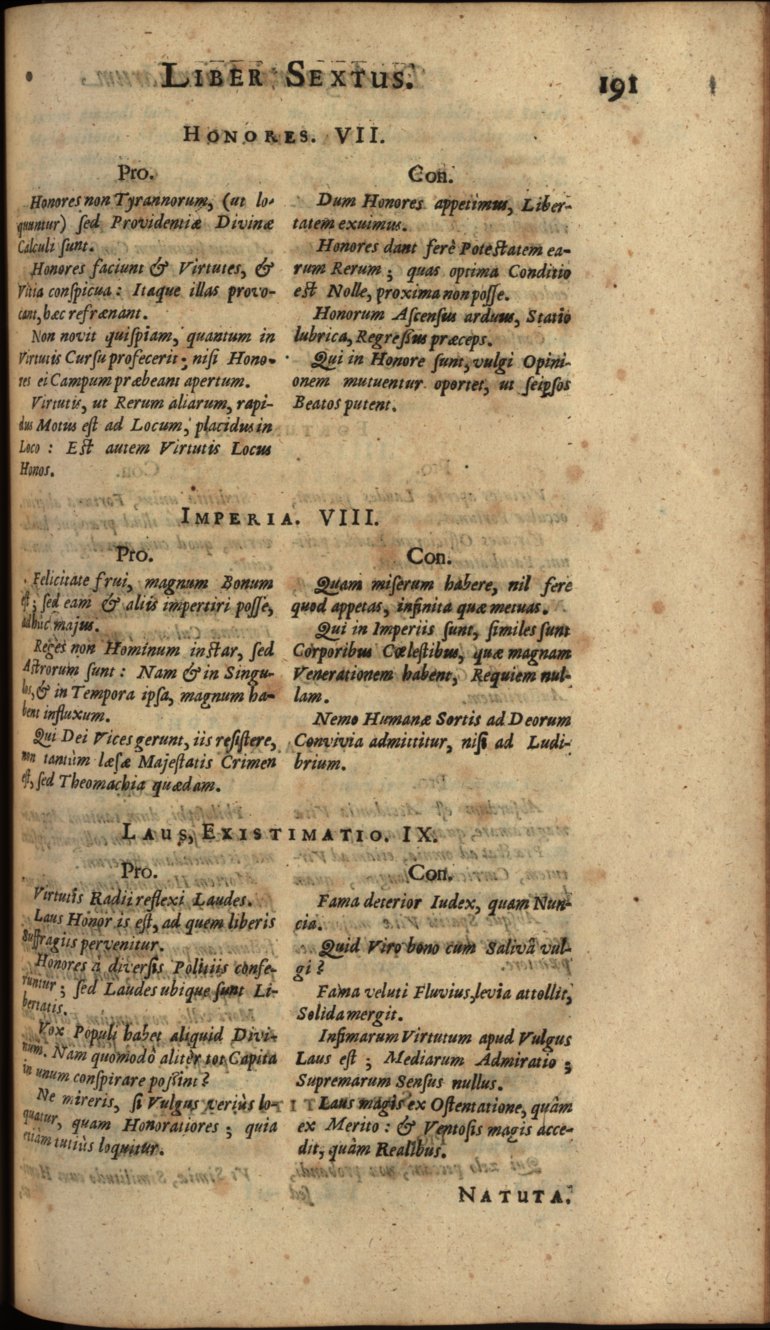 LIBER SEXTUS.
191
HONORES. VII.
Pro.
Honores non Tyrannorum, (ut lo-
quuntur) ſed Providentiæ Divinæ
Calculi ſunt.
Honores faciunt & Virtutes, &
Vitia conſpicua: Itaque illas provo-
cant, hæc refrænant.
Non novit quiſpiam, quantum in
Virtutis Curſu profecerit; niſi Hono-
res ei Campum præbeant apertum.
Virtutis, ut Rerum aliarum, rapi-
dus Motus eſt ad Locum, placidus in
Loco: Eſt autem Virtutis Locus
Honos.
Con.
Dum Honores appetimus, Liber-
tatem exuimus.
Honores dant ferè Poteſtatem ea-
rum Rerum; quas optima Conditio
eſt Nolle, proxima non poſſe.
Honorum Aſcenſus arduus, Statio
lubrica, Regreſſus præceps.
Qui in Honore ſunt, vulgi Opini-
onem mutuentur oportet, ut ſeipſos
Beatos putent.
IMPERIA. VIII.
Pro.
Felicitate frui, magnum Bonum
eſt; ſed eam & aliis impertiri poſſe,
adhuc majus.
Reges non Hominum inſtar, ſed
Aſtrorum ſunt: Nam & in Singu-
los, & in Tempora ipſa, magnum ha-
bent influxum.
Qui Dei Vices gerunt, iis reſiſtere,
non tantùm læſæ Majeſtatis Crimen
eſt, ſed Theomachia quædam.
Con.
Quam miſerum habere, nil fere
quod appetas, infinita quæ metuas.
Qui in Imperiis ſunt, ſimiles ſunt
Corporibus Cœleſtibus, quæ magnam
Venerationem habent, Requiem nul-
lam.
Nemo Humanæ Sortis ad Deorum
Convivia admittitur, niſi ad Ludi-
brium.
LAUS, EXISTIMATIO. IX.
Pro.
Virtutis Radii reflexi Laudes.
Laus Honor is eſt, ad quem liberis
Suffragiis pervenitur.
Honores à diverſis Politiis confe-
runtur; ſed Laudes ubique ſunt Li-
bertatis.
Vox Populi habet aliquid Divi-
num. Nam quomodò aliter tot Capita
in unum conſpirare poſſint?
Ne mireris, ſi Vulgus veriùs lo-
quatur, quam Honoratiores; quia
etiam tutiùs loquitur.
Con.
Fama deterior Iudex, quam Nun-
cia.
Quid Viro bono cum Salivâ vul-
gi?
Fama veluti Fluvius, levia attollit,
Solida mergit.
Infimarum Virtutum apud Vulgus
Laus eſt; Mediarum Admiratio;
Supremarum Senſus nullus.
Laus magis ex Oſtentatione, quàm
ex Merito: & Ventoſis magis acce-
dit, quàm Realibus.
NATUTA.